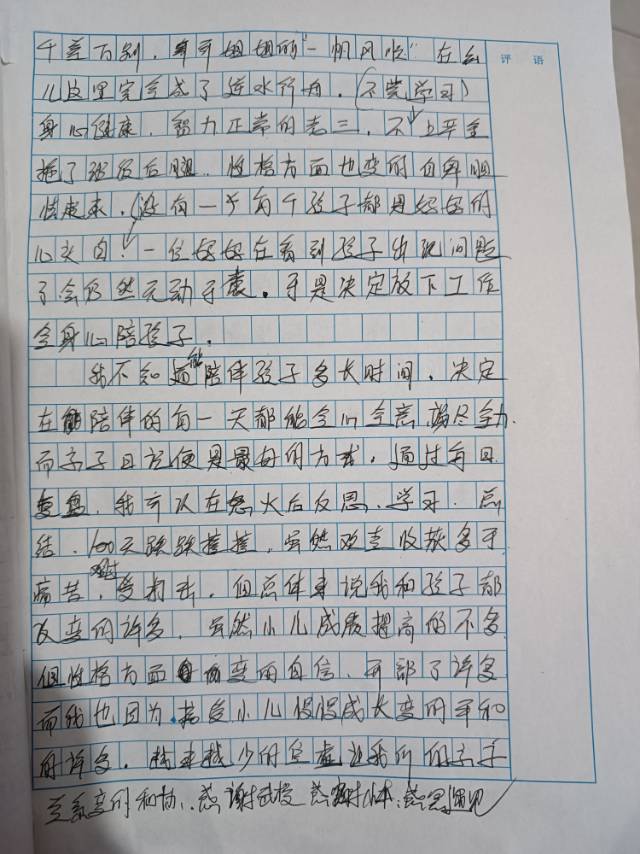 评 语
千差万别，哥哥姐姐的"一帆风顺"在幺
儿这里完全成了逆水行舟。(不荒学习)
身心健康，智力正常的老三，不上平台
拖了班级后腿，性格方面也变的自卑胆
怯起来。没有一个有个孩子都是妈妈的
心头肉！一位妈妈在看到孩子出现问题
了会仍然无动于衷。于是决定放下工作
全身心陪孩子。
我不知道能陪伴孩子多长时间，决定
在陪伴的每一天都能全心全意，竭尽全力。
而亲子日记便是最好的方式，通过每日
复盘，我可以在怒火后反思、学习、总
结，100天跌跌撞撞，虽然欢喜收获多于
痛苦，受打击，但总体来说我和孩子都
改变的许多，虽然小儿成质提高的不多
但性格方面变的自信、开朗了许多
而我也因为接受小儿慢慢成长变的平和
的许多。越来越少的焦虑让我们的亲子
关系变的和协。感谢